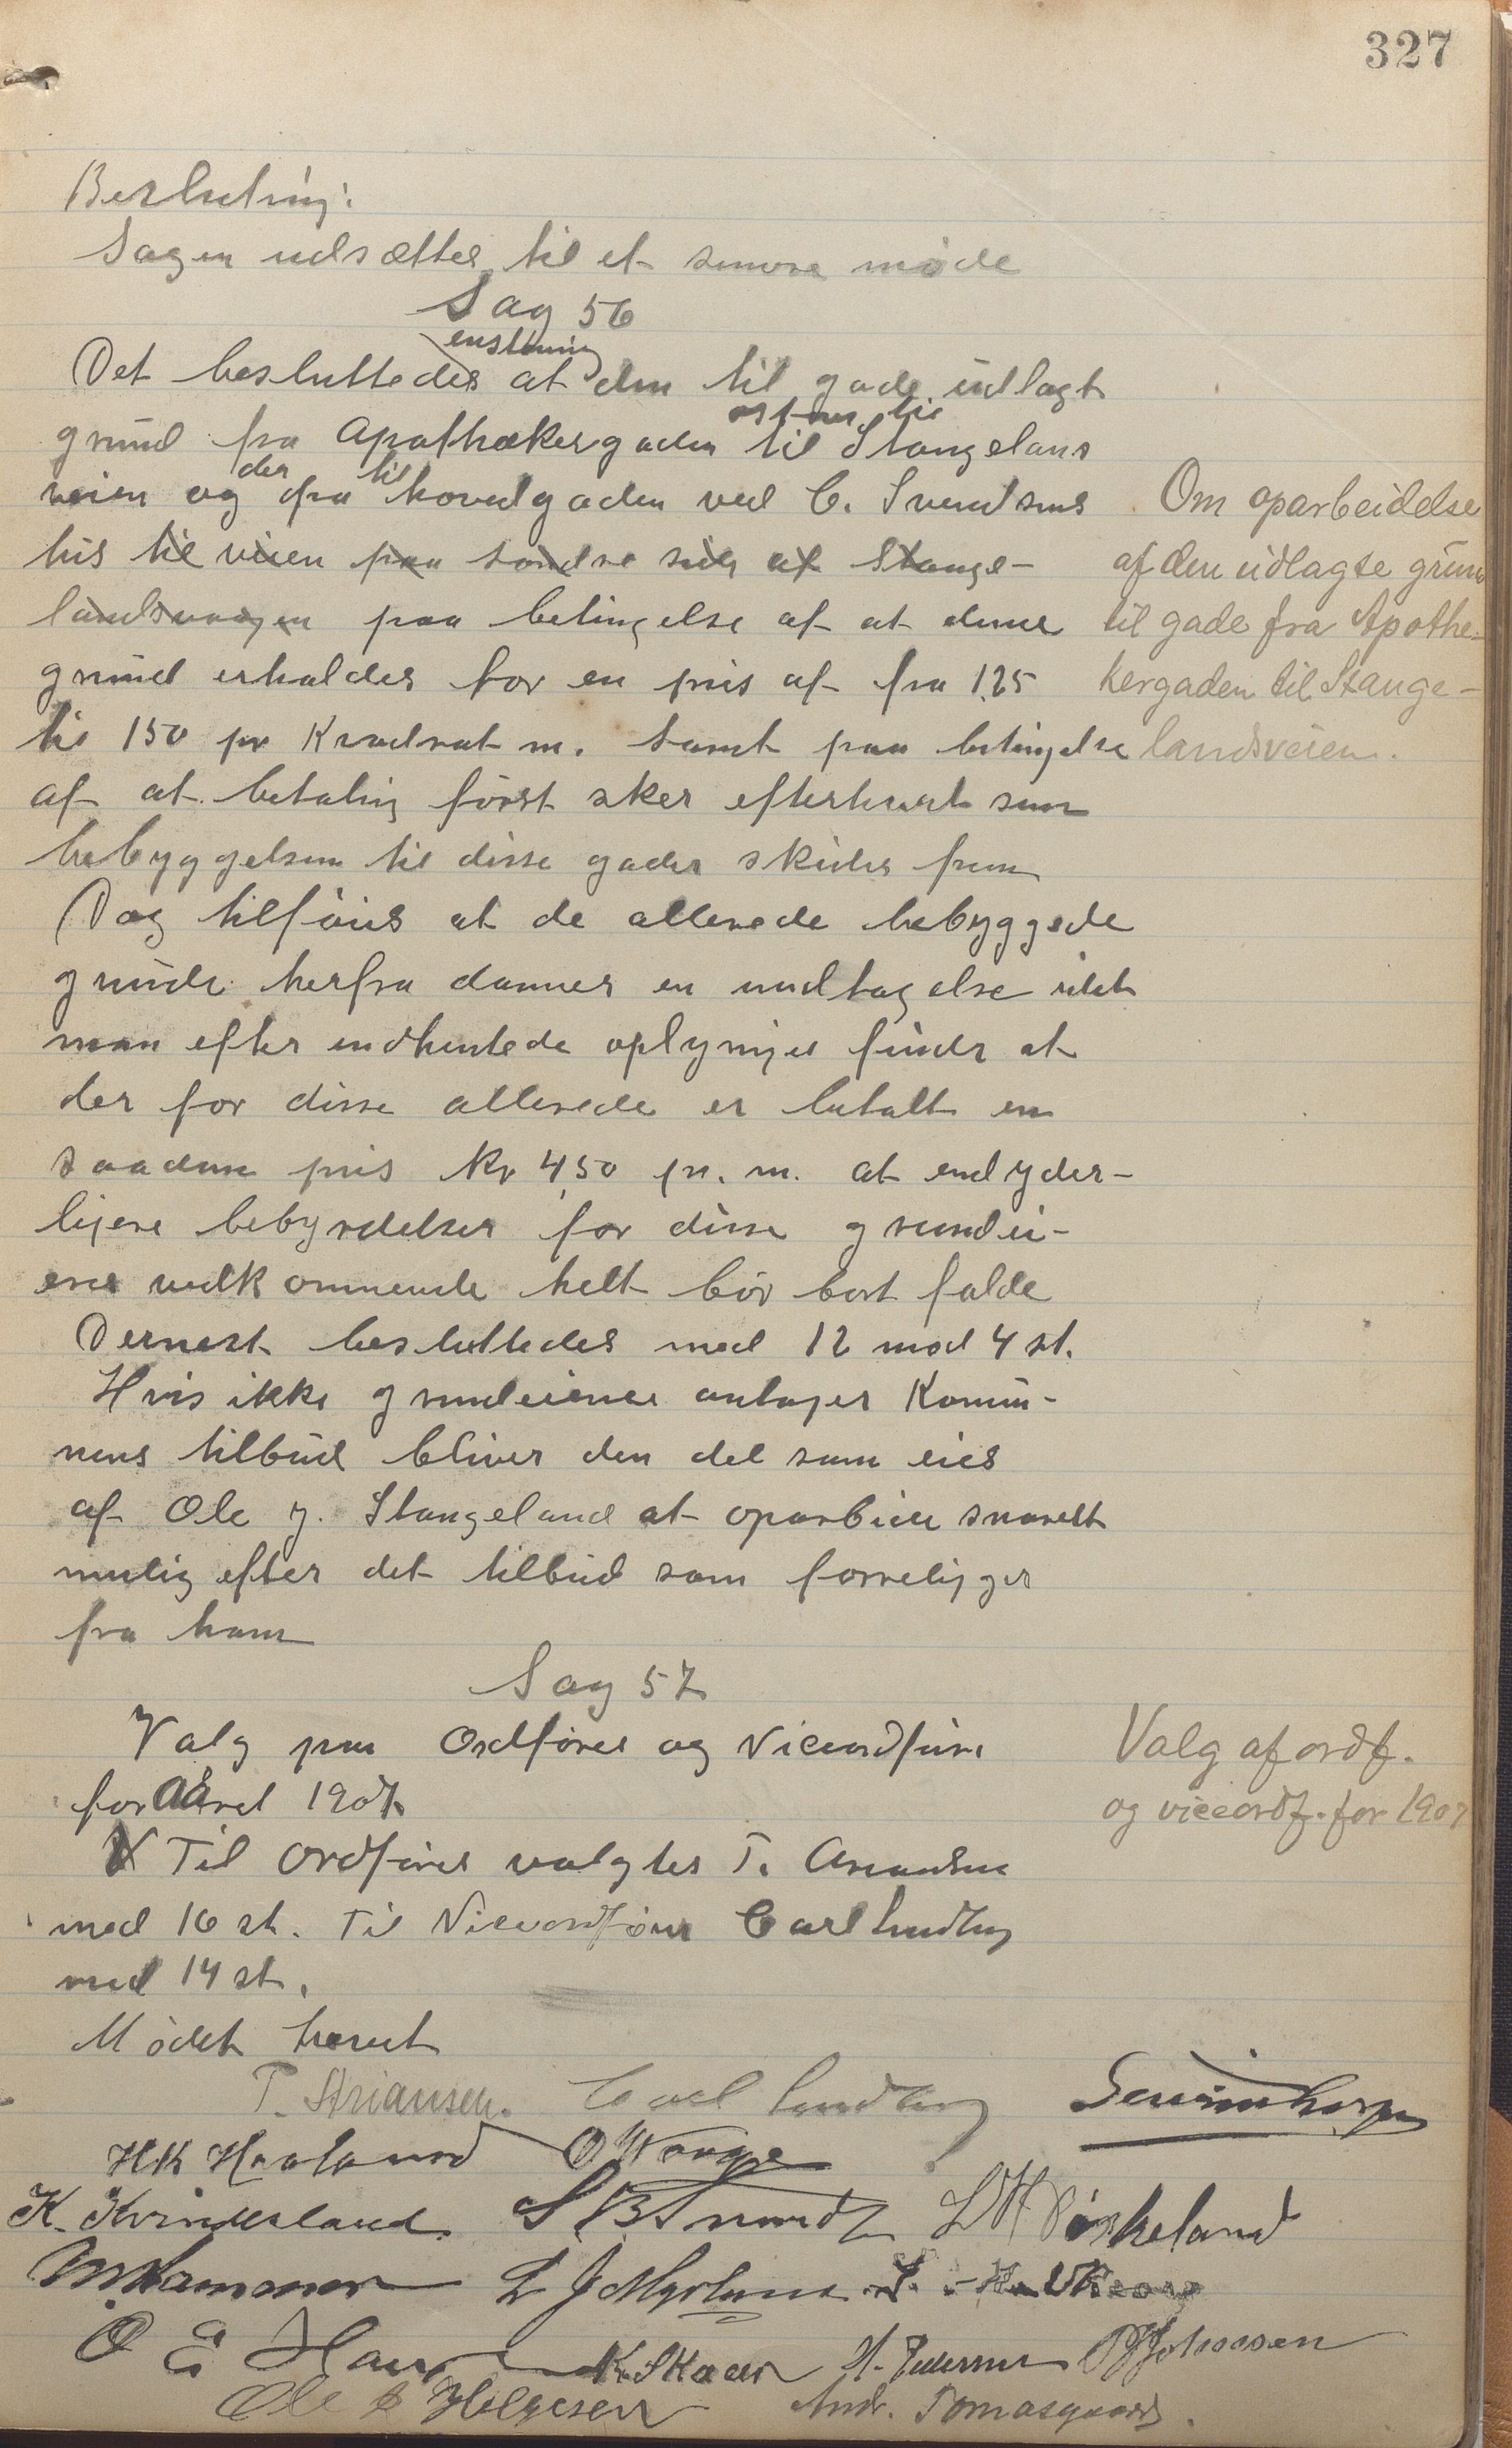 327
Beslutning:
Sagen udsættes til et senere møde
Sag 56
enstemmig
Det besluttedes at den til gade udlagt
østover til
grund fra Apothekergaden til Stangelans
der til
veien og fra hovedgaden ved C. Svendsens
hus til veien paa søndre side af Stange-
landsvaagen paa betingelse af at denne
grund erholdes for en pris af fra 1,25
til 150 pr Kvadrat m. samt paa betingelse
af at betaling først sker efterhvert som
bebyggelsen til disse gader skrider frem
Dog tilføies at de allerede bebyggede
grunde herfra danner en undtagelse idet
man efter indhentede oplysninger finder at
der for disse allerede er betalt en
saadan pris Kr 4,50 pr. m. at endyder-
ligere bebyrdelser for disse grundei-
eres vedkommende helt bør bort falde
Dernest besluttedes med 12 mod 4 st.
Hvis ikke grundeierne antager Komu-
nens tilbud bliver den del som eies
af Ole J. Stangeland at oparbeide snarest
mulig efter det tilbud som forreligger
fra ham
Om oparbeidelse
af den udlagte grund
til gade fra Apothe-
kergaden til Stange-
landsveien.
Sag 57
Valg paa Ordfører og Viceordfører
for Aaret 1907.
Til Ordfører valgtes T. Ariansen
med 16 st. Til Viceordfører Carl Lundberg
med 14 st.
Mødet hævet
Valg af ordf.
og viceordf. for 1907
T. Ariansen. Carl Lundberg
HK Hauland O Vaage
K. Kvinnesland S B Smardt L H Birkeland
O E Hau K. Skaar H. Pedersen P J Johnsen
Ole S Helgesen Andr. Tomasgaard.